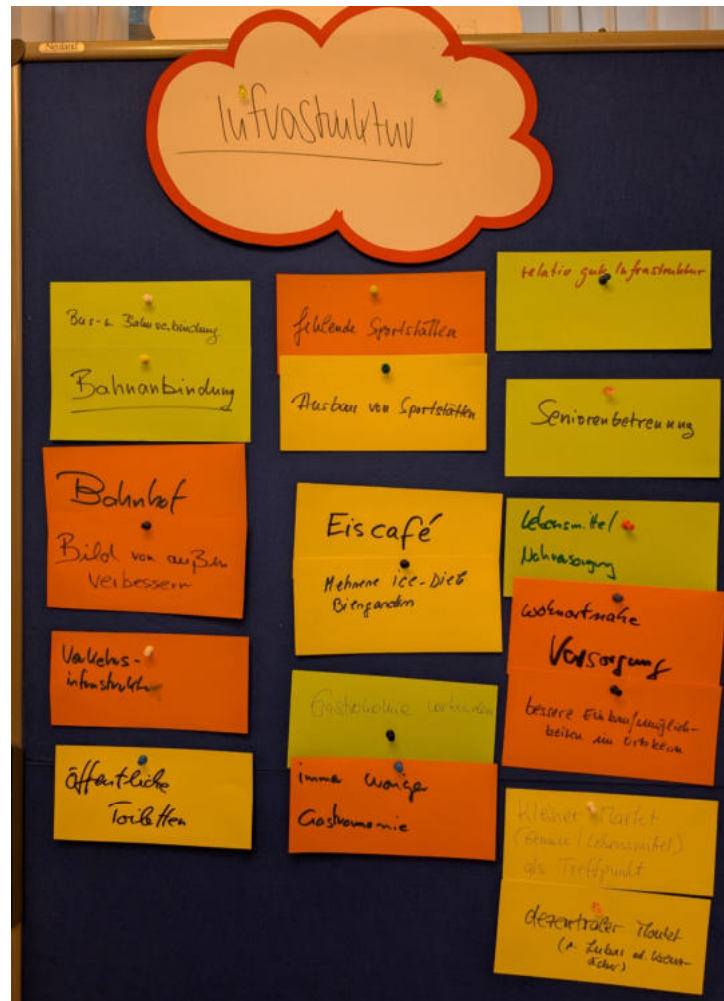 Neuland
Infrastruktur
Bus- u. Bahnverbindung
Bahnanbindung
Bahnhof
Bild von außen
verbessern
Verkehrs-
infrastruktur
öffentliche
Toiletten
fehlende Sportstätten
Ausbau von Sportstätten
Eiscafé
Mehrere ice-Diele
Biergarten
Gastronomie vorhanden
immer weniger
Gastronomie
relativ gute Infrastruktur
Seniorenbetreuung
Lebensmittel
Nahversorgung
wohnortnahe
Versorgung
bessere Einkaufsmöglich-
keiten im Ortskern
Kleiner Markt
(Gemüse/Lebensmittel)
als Treffpunkt
dezentraler Markt